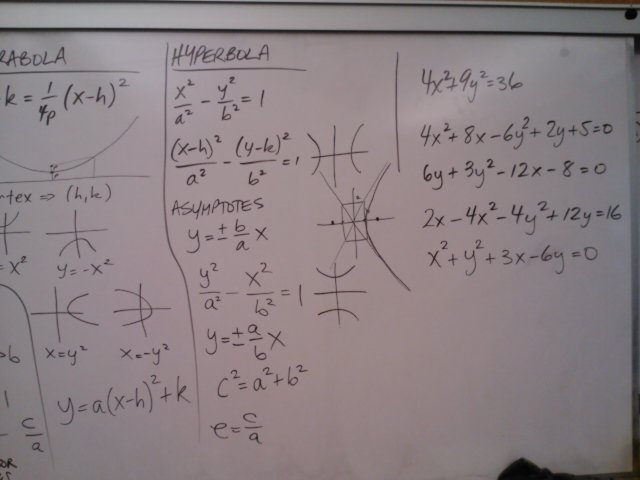 RABOLA
k = 1/4p (x-h)²
rtex ⇒ (h,k)
= x²
y = -x²
x = y²
x = -y²
y = a(x-h)² + k
c/a
HYPERBOLA
x²/a² - y²/b² = 1
(x-h)²/a² - (y-k)²/b² = 1
ASYMPTOTES
y = ± b/a x
y²/a² - x²/b² = 1
y = ± a/b x
c² = a² + b²
e = c/a
4x² + 9y² = 36
4x² + 8x - 6y² + 2y + 5 = 0
6y + 3y² - 12x - 8 = 0
2x - 4x² - 4y² + 12y = 16
x² + y² + 3x - 6y = 0